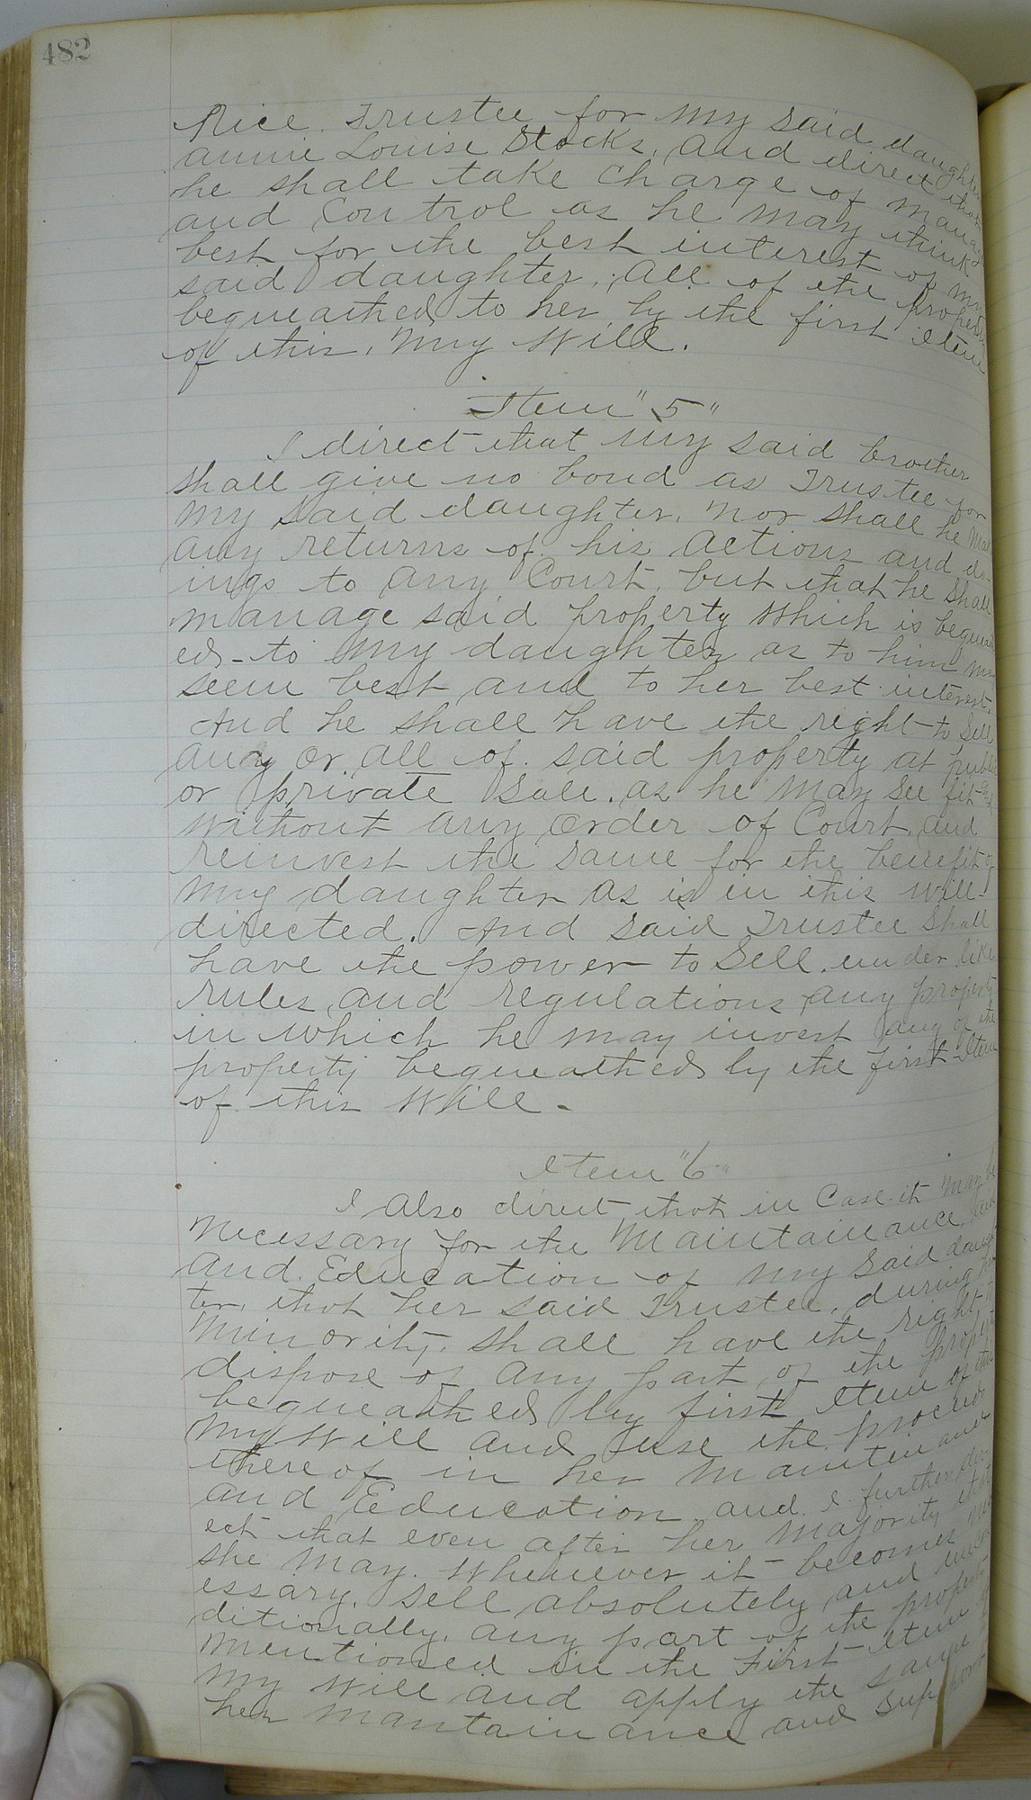 482
Rice. Trustee for my said daughter
Annie Louise Stocks, and direct that
he shall take charge of manage
and Control as he may think
best for the best interest of my
said daughter, all of the property
bequeathed to her by the first item
of this, my Will.
Item "5"
I direct that my said brother
shall give no bond as Trustee for
my said daughter. nor shall he
any returns of his actions and do-
ings to any Court, but that he shall
manage said property which is bequeath
ed to my daughter as to him
seem best and to her best interest.
And he shall have the right to Sell
any or all of said property at public
or private Sale. as he may see fit
without any order of Court, and
reinvest the same for the benefit of
my daughter as is in this will
directed. And said Trustee Shall
have the power to Sell. under like
rules and regulations any property
in which he may invest any of the
property bequeathed by the first Item
of this Will.
Item "6"
I also direct that in Case it may be
necessary for the Maintainance
and Education of my Said daugh
ter, that her said Trustee, during
minority, shall have the right
dispose of any part of the property
bequeathed by first Item of this
my Will and use the proceeds
thereof in her Maintenance
and Education and I further dir
ect that even after her majority that
she may. whenever it becomes nec
essary. Sell absolutely and uncon
ditionally. any part of the property
mentioned in the First Item of
my Will and apply the same
her mantainance and Support